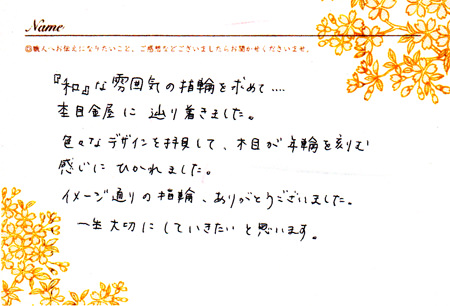 Name
◎職人へお伝えになりたいこと、ご感想などございましたらお聞かせくださいませ。
『和』な雰囲気の指輪を求めて‥‥
杢目金屋に辿り着きました。
色々なデザインを拝見して、木目が年輪を刻む
感じにひかれました。
イメージ通りの指輪、ありがとうございました。
一生大切にしていきたいと思います。